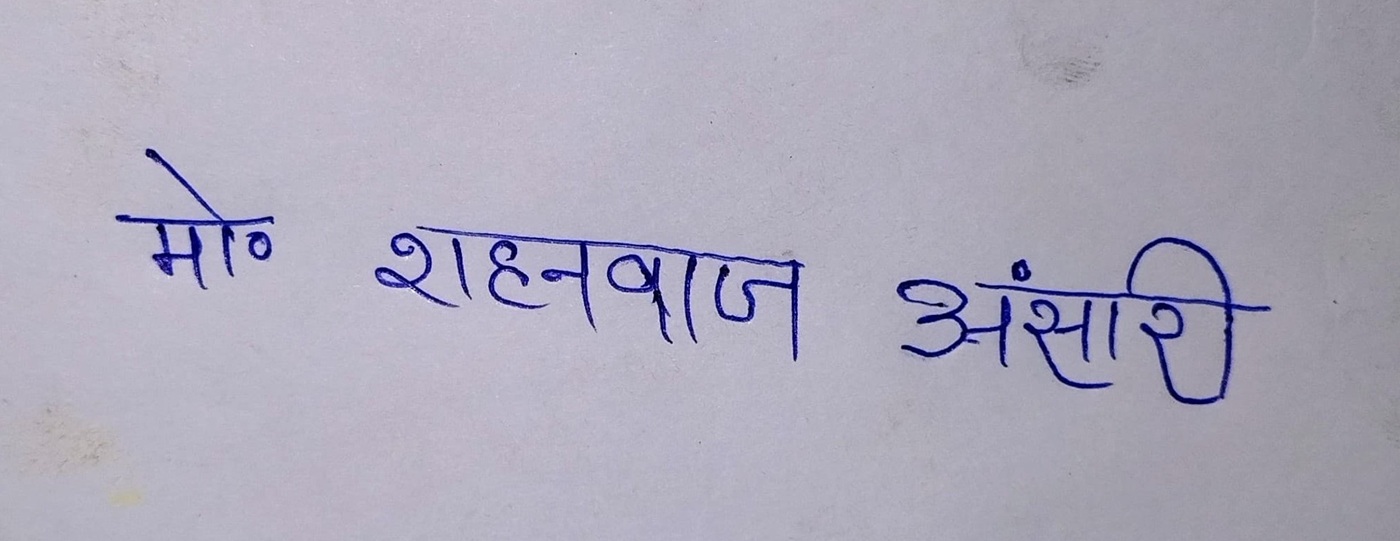 मो० शहनवाज अंसारी